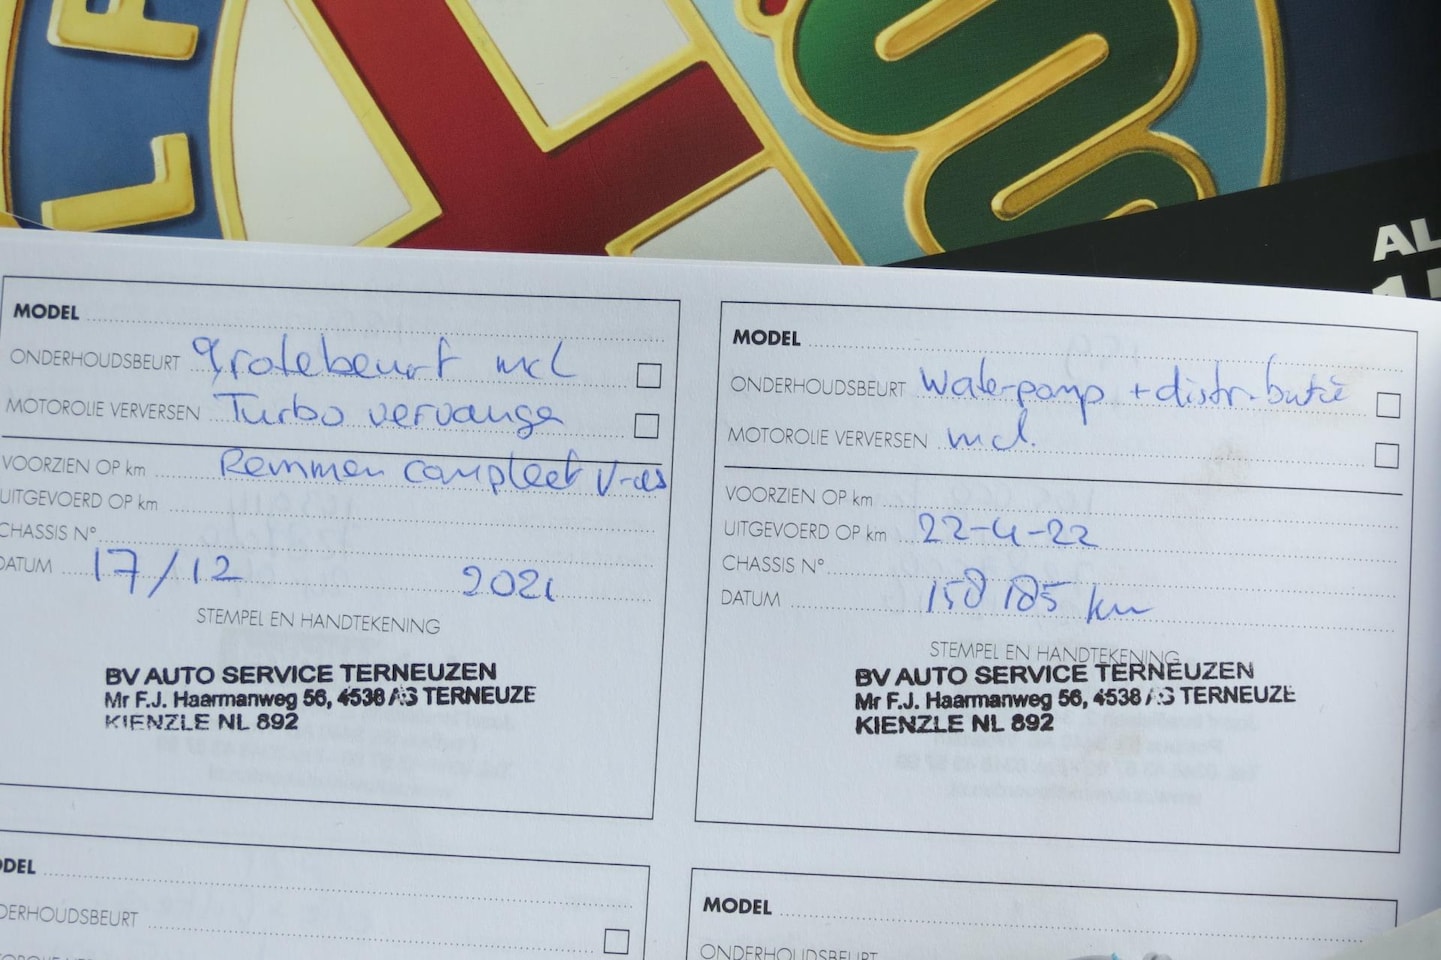 LF
AL
MODEL
ONDERHOUDSBEURT grote beurt incl
MOTOROLIE VERVERSEN Turbo vervange
VOORZIEN OP km Remmen compleet V-as
UITGEVOERD OP km
CHASSIS N°
DATUM 17/12 2021
STEMPEL EN HANDTEKENING
BV AUTO SERVICE TERNEUZEN
Mr F.J. Haarmanweg 56, 4538 AS TERNEUZE
KIENZLE NL 892
MODEL
ONDERHOUDSBEURT Waterpomp + distributie
MOTOROLIE VERVERSEN incl.
VOORZIEN OP km
UITGEVOERD OP km 22-4-22
CHASSIS N°
DATUM 158 185 km
STEMPEL EN HANDTEKENING
BV AUTO SERVICE TERNEUZEN
Mr F.J. Haarmanweg 56, 4538 AS TERNEUZE
KIENZLE NL 892
ODEL
DERHOUDSBEURT
MODEL
ONDERHOUDSBEURT